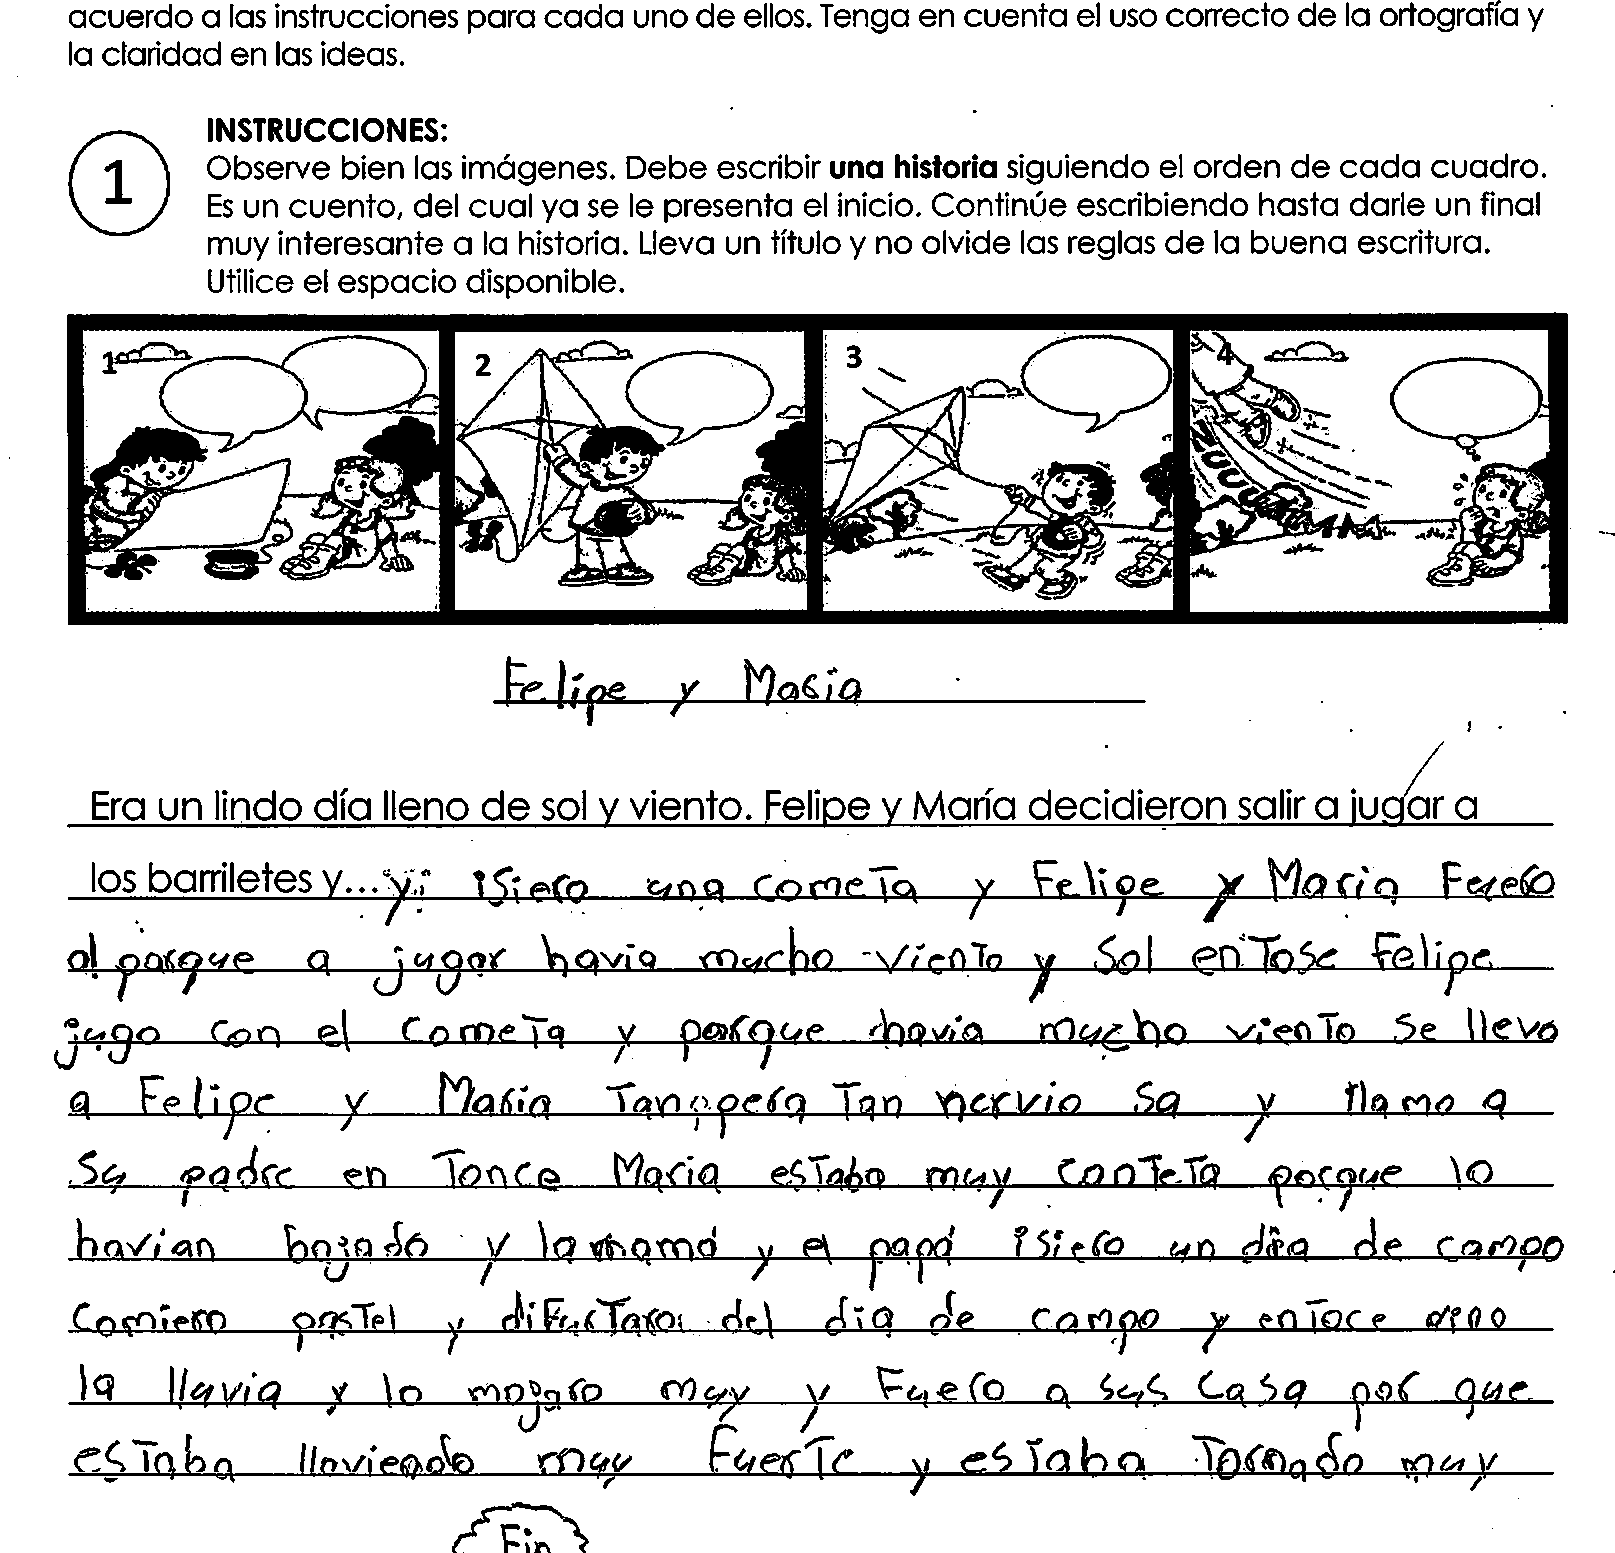 acuerdo a las instrucciones para cada uno de ellos. Tenga en cuenta el uso correcto de la ortografía y
la claridad en las ideas.
INSTRUCCIONES:
1
Observe bien las imágenes. Debe escribir una historia siguiendo el orden de cada cuadro.
Es un cuento, del cual ya se le presenta el inicio. Continúe escribiendo hasta darle un final
muy interesante a la historia. Lleva un título y no olvide las reglas de la buena escritura.
Utilice el espacio disponible.
1 2 3 4
ZOOUUMMM
Felipe y Maria
Era un lindo día lleno de sol y viento. Felipe y María decidieron salir a jugar a
los barriletes y... y isiero una cometa y Felipe y Maria Fuero
al parque a jugar havia mucho viento y Sol entose Felipe
jugo con el cometa y porque havia mucho viento se llevo
a Felipe y Maria Tan nervio sa y llamo a
Su padre en Tonce Maria estaba muy conteta porque lo
havian bajado y la mamá y el papá isiero un dia de campo
comiero pastel y difurtaro del dia de campo y entoce vino
la lluvia y lo mojaro muy y Fuero a sus casa por que
estaba lloviendo muy Fuerte y estaba Tornado muy
Fin